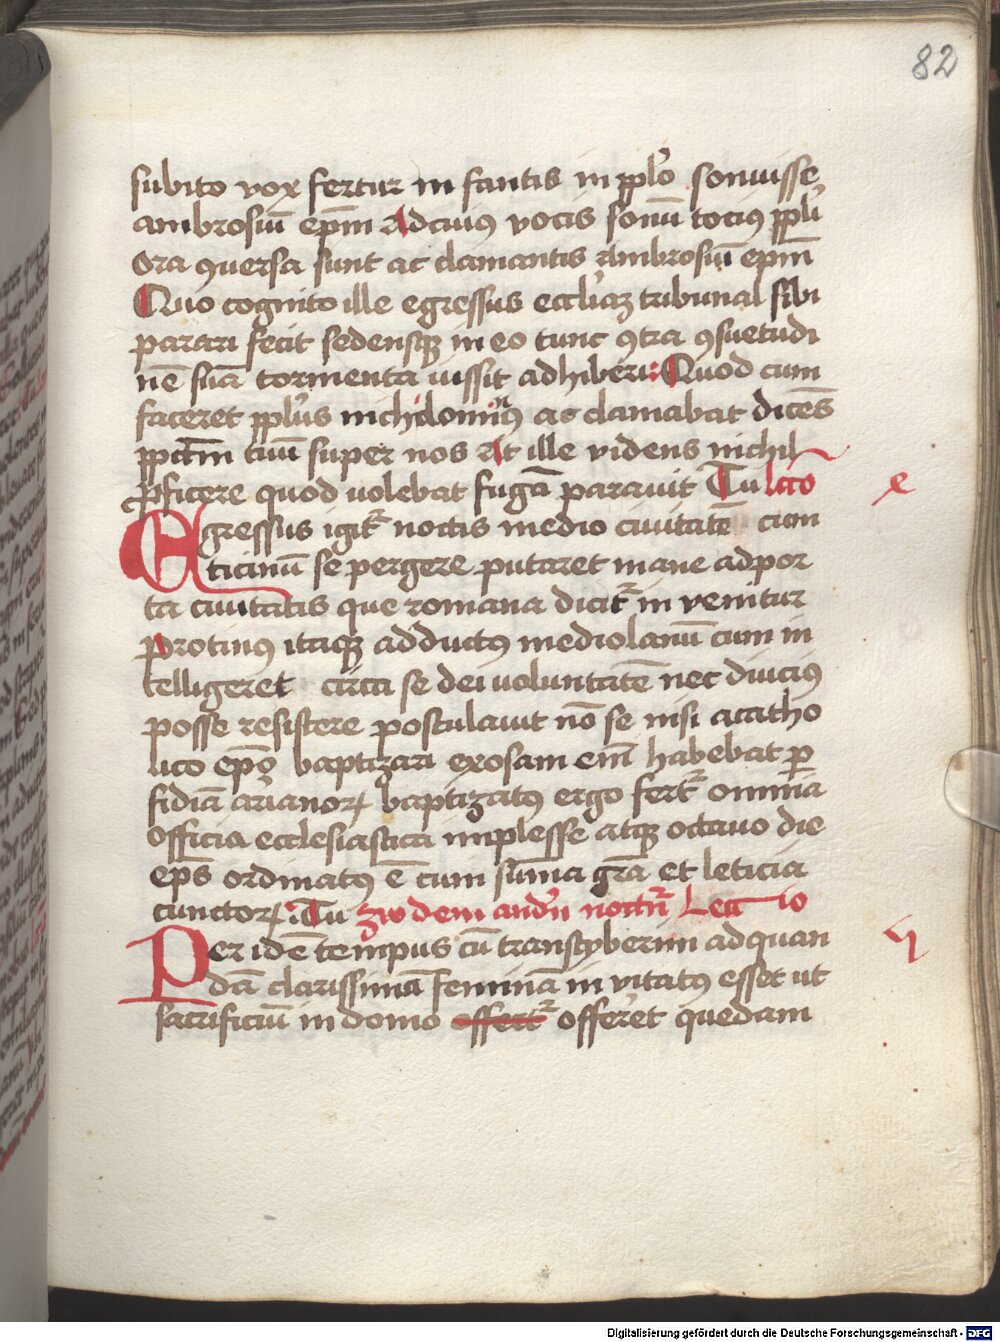 82
subito vox fertur in fantis in pplo sonuisse
ambrosiū epm̄ Ad cuius vocis sonū totius ppli
ora ꝯuersa sunt ac clamantis Ambrosiū epm̄
Quo cognito ille egressus eccliaʒ tribunal sibi
parari fecit sedensqʒ in eo tunc ꝯtra ꝯsuetudi
nē suā tormenta iussit adhiberi: Quod cum
faceret pplus nichilominꝰ ac clamabat dicēs
ppctm̄ tuū super nos At ille videns nichil
ꝓficere quod uolebat fugā parauit Tu lctō
e
Egressus igitr̄ noctis medio ciuitatē cum
ticinū se pergere putaret mane ad por
ta ciuitatis que romana dicitr̄ in venitur
Protinꝰ itaqʒ adductus mediolanū cum in
telligeret circa se dei uoluntatē nec diuciꝰ
posse resistere postulauit nō se nisi a catho
lico epō baptizari exosam em̄ habebat ꝑ
fidiā arianoꝝ baptizatꝰ ergo fertr̄ omnia
officia ecclesiastica implesse atqʒ octauo die
eps̄ ordinatꝰ ē cum sūma grā et leticia
cunctoꝝ: Tu zw dem andn̄ noctn̄ Lectio
Per idē tempus cū transtyberim ad quan
dā clarissimā feminā in vitatꝰ esset ut
sacrificiū in domo offertr̄ offeret quedam